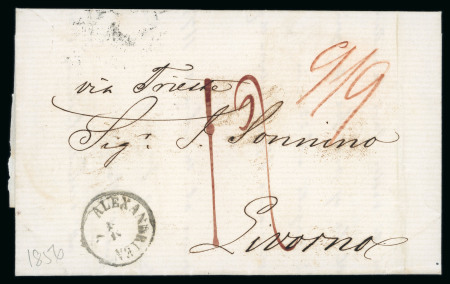 9/9
via Trieste
12
Sigr. S. Sonnino
Livorno
ALEXANDRIEN
1856